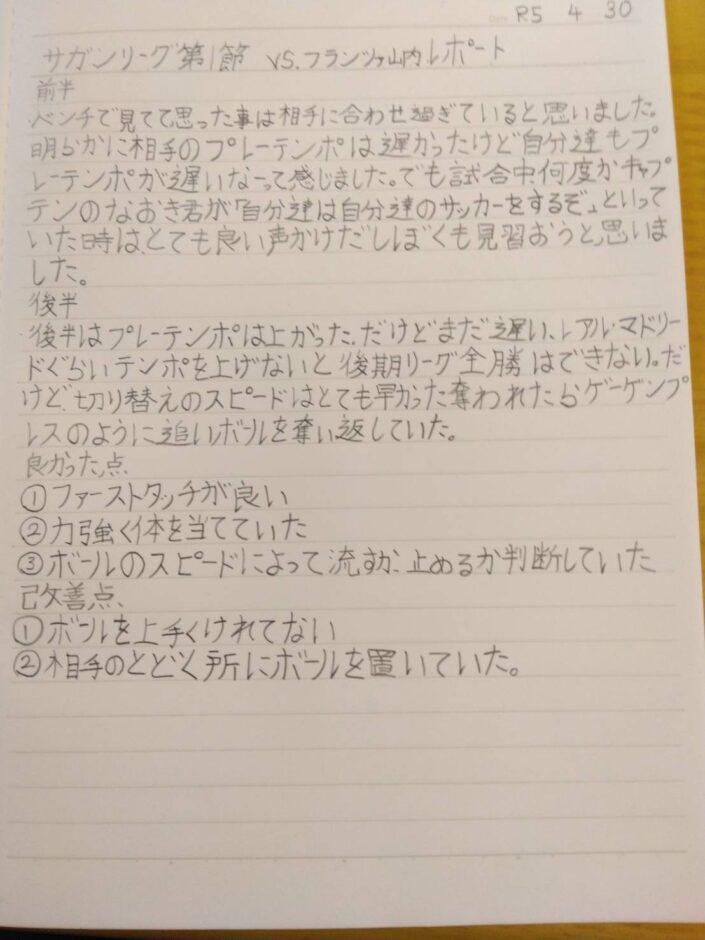 Date R5 4 30
サガンリーグ第1節 VS.フランツァ山内レポート
前半
ベンチで見てて思った事は相手に合わせ過ぎていると思いました。
明らかに相手のプレーテンポは遅かったけど自分達もプ
レーテンポが遅いなーって感じました。でも試合中、何度かキャプ
テンのなおき君が「自分達は自分達のサッカーをするぞ」といって
いた時は、とても良い声かけだしぼくも見習おうと思いま
した。
後半
後半はプレーテンポは上がった。だけどまだ遅い、レアル・マドリー
ドぐらいテンポを上げないと後期リーグ全勝はできない。だ
けど、切り替えのスピードはとても早かった奪われたらゲーゲンプ
レスのように追いボールを奪い返していた。
良かった点、
①ファーストタッチが良い
②力強く体を当てていた
③ボールのスピードによって流すか、止めるか判断していた
改善点、
①ボールを上手くけれてない
②相手のとどく所にボールを置いていた。